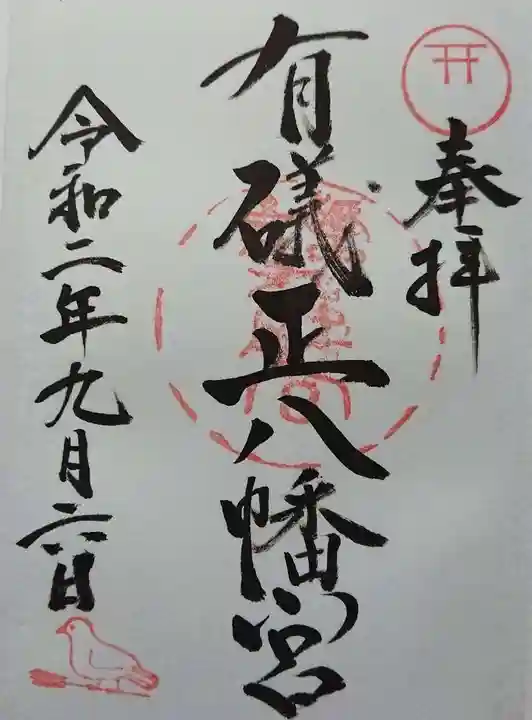 奉拝
有礒正八幡宮
令和二年九月六日